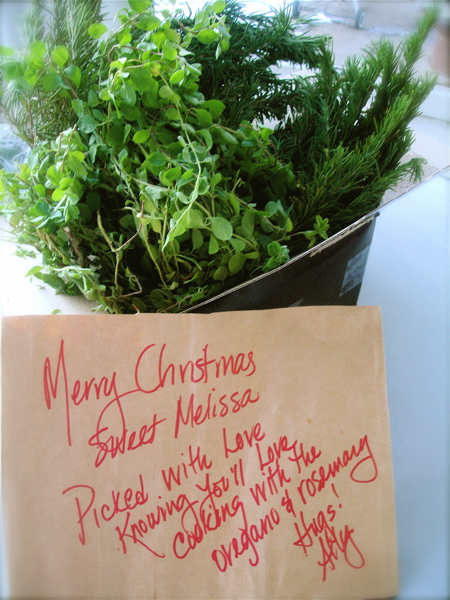 Merry Christmas
Sweet Melissa
Picked with Love
Knowing You'll Love
cooking with the
oregano & rosemary
Hugs!